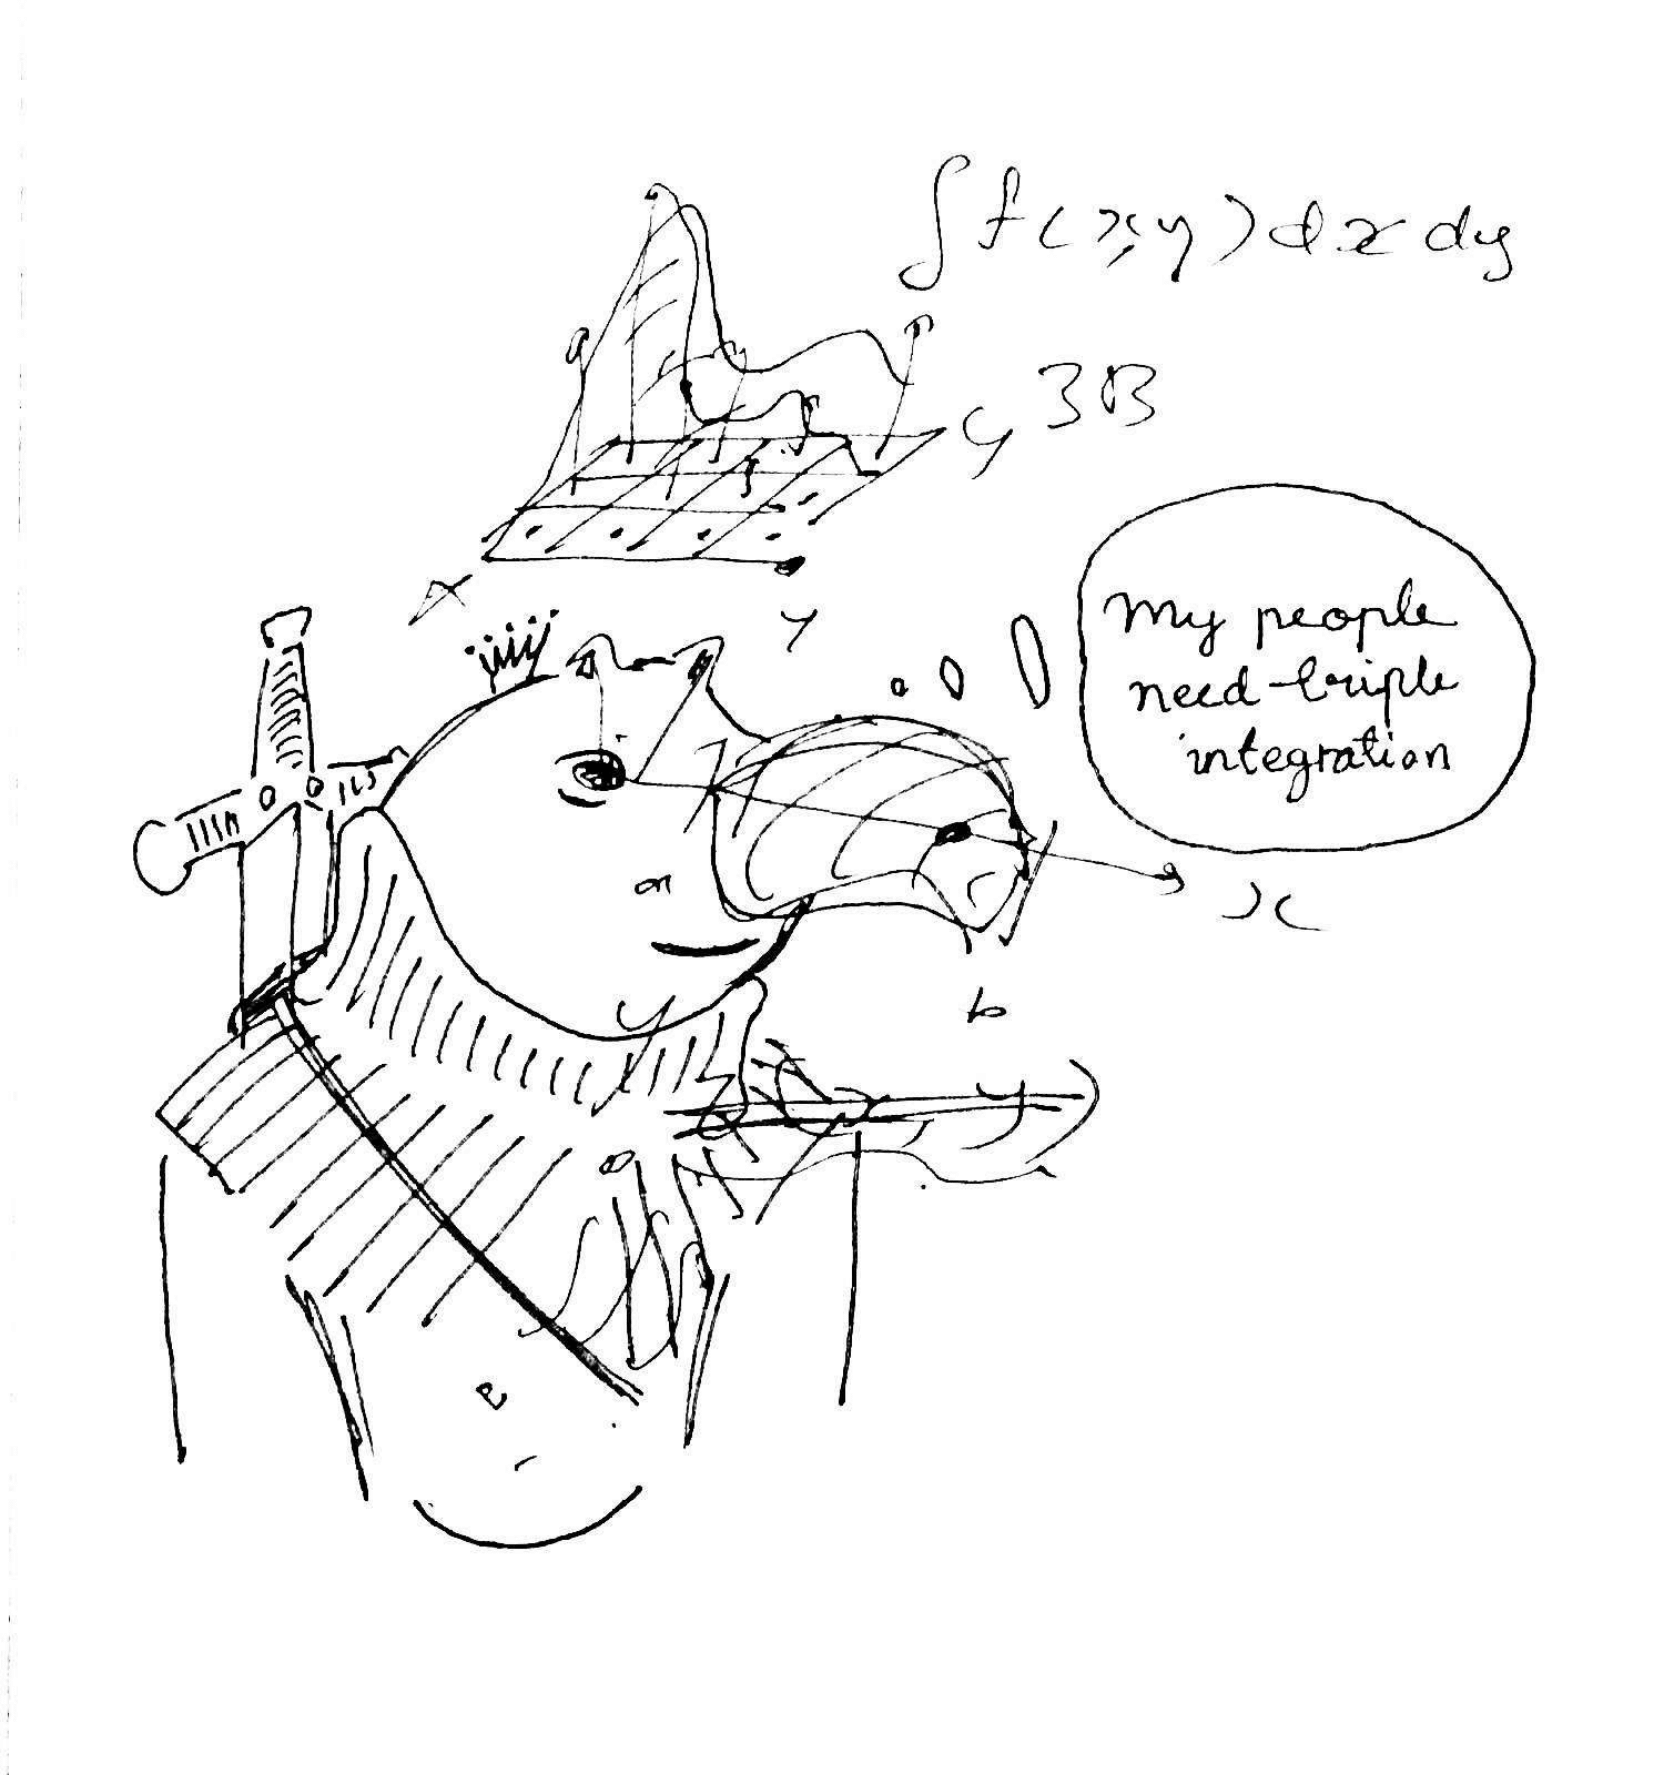 ∫f(x,y)dxdy
My people
need triple
integration
x
y
b
y